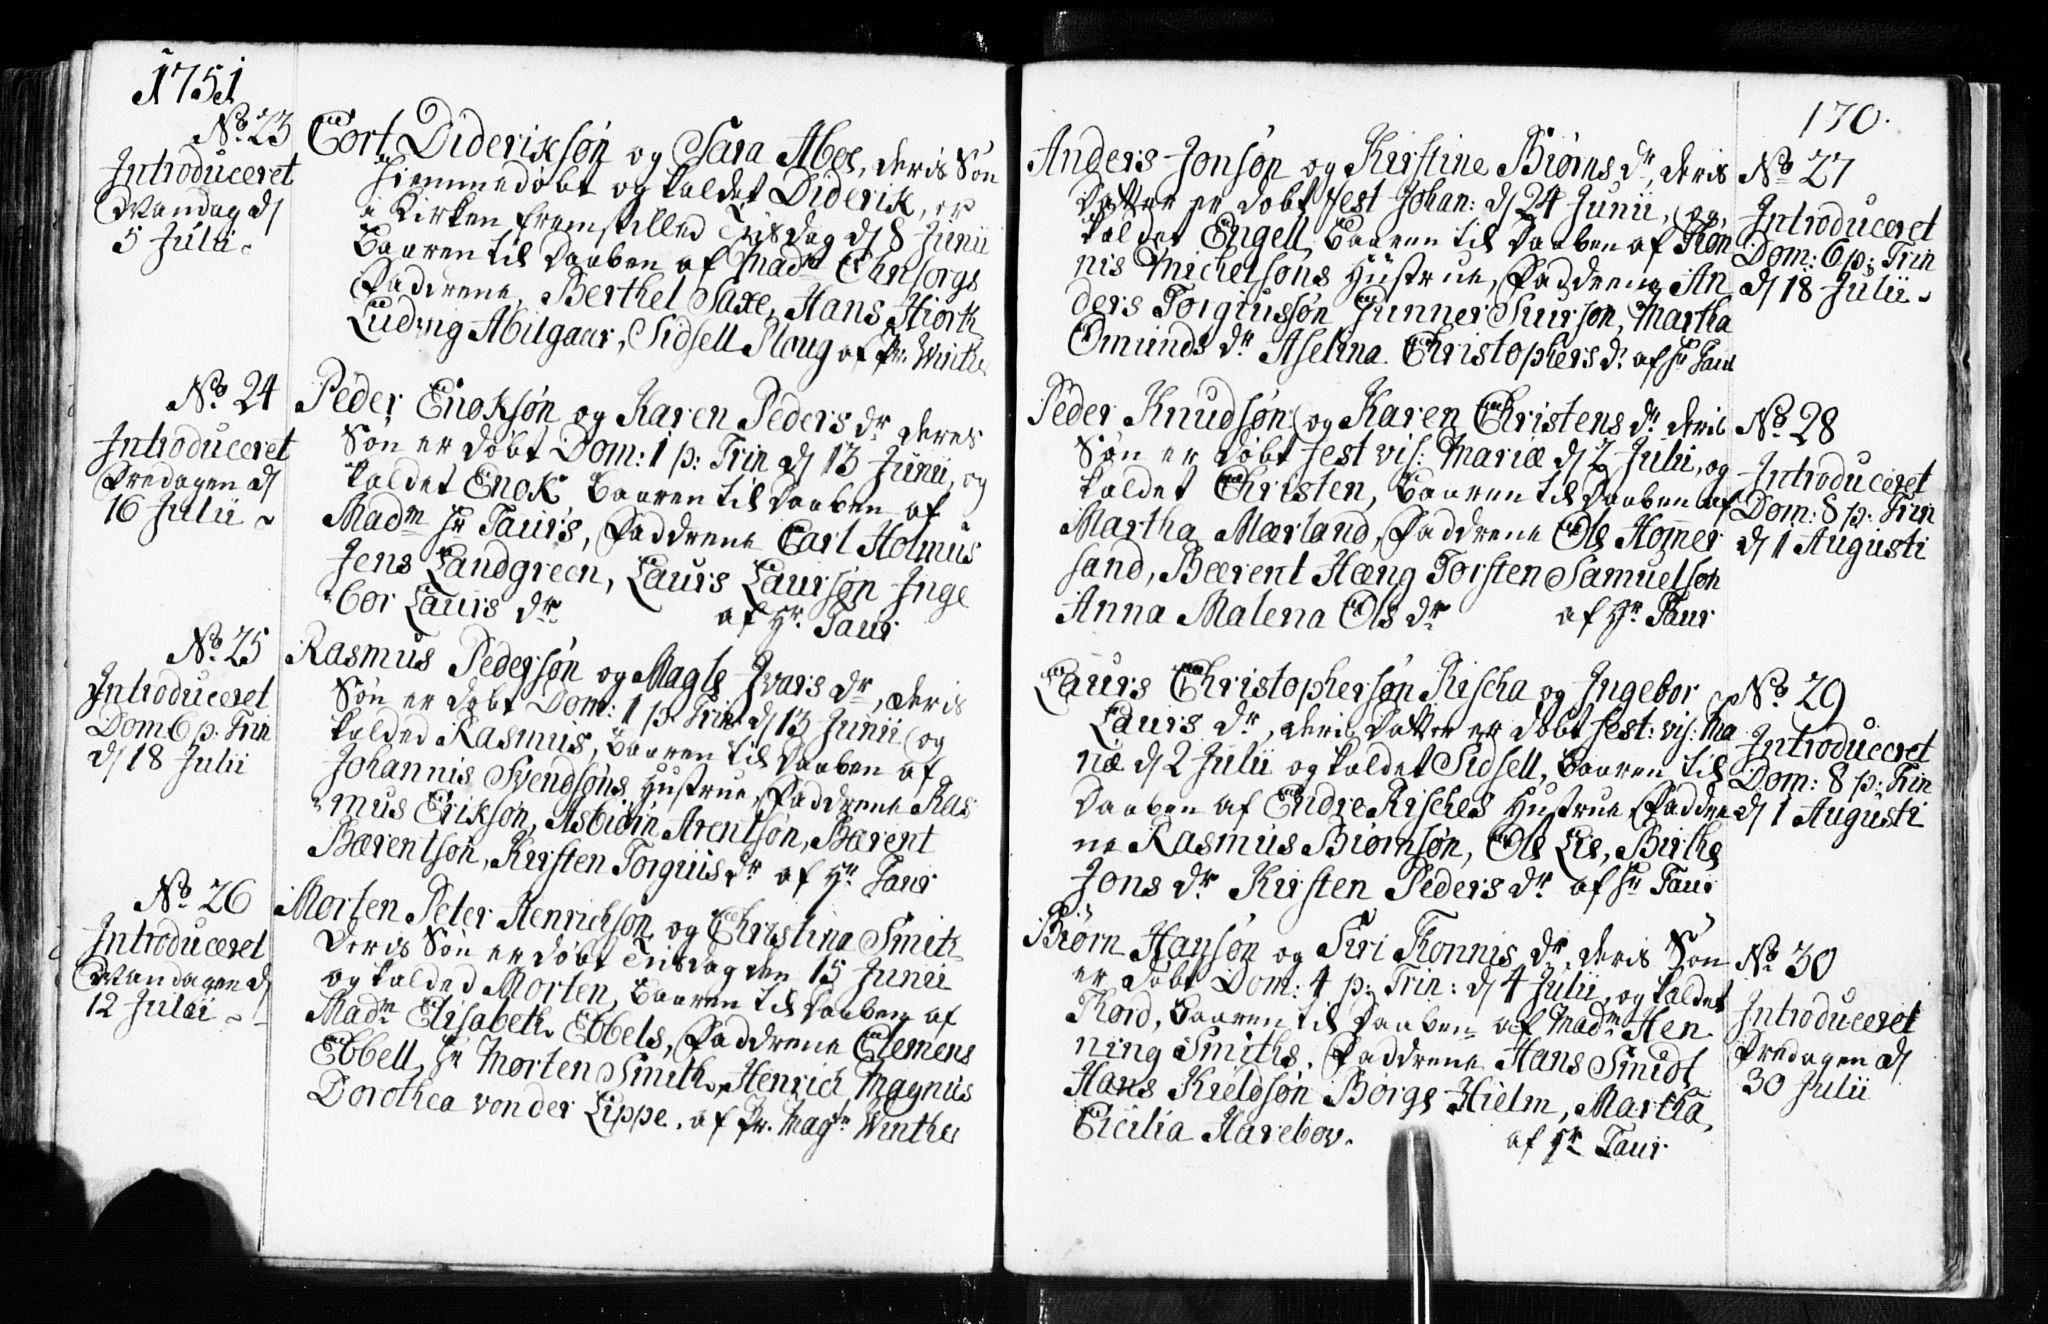 1751
No. 23
Introduceret
Mandag d/
5 Julii.
Cort Dideriksøn og Sara Abos, deris Søn
hiemmedøbt og kaldet Diderik, er
i Kirken fremstilled Tisdag d/ 8 Junii
Baaren til Daaben af Madm
Faddrene, Berthel Saxe, Hans Hiorth
Ludvig Abilgaar, Sidsell Ploug af Hr. Winther
No. 24
Introduceret
Fredagen d/
16 Julii
Peder Enoksøn og Karen Peders dr deres
Søn er døbt Dom: 1 p: Trin d/ 13 Junii, og
kaldet Enok, Baaren til Daaben af
Madm Hr Taurs, Faddrene Carl Holmus
Jens Landgreen, Laurs Laursøn Inge
bor Laurs dr af Hr. Taur
No. 25
Introduceret
Dom 6 p: Trin
d/ 18 Julii
Rasmus Pedersøn og Magle Ivars dr, deris
Søn er døbt Dom: 1 p: Trin d/ 13 Junii og
kalded Rasmus, baaren til Daaben af
Johannis Svendsøns Hustrue, Faddrene Ras
mus Eriksøn, Asbiørn Arentsøn, Bærent
Bærentsøn, Kirsten Torgiusdr af Hr. Taur
No. 26
Introduceret
Mandagen d/
12 Julii
Morten Peter Henrichsøn og Christina Smith
deris Søn er døbt Tiisdag den 15 Junii
og kalded Morten, baaren til Daaben af
Madm Elisabeth Ebbels, Faddrene Clemens
Ebbell, Hr Morten Smith, Henrich Magnus
Dorothea von der Lippe. af Hr. Magr Winther
170.
Anders Jonsøn og Kirstine Biørns dr, deris
Datter er døbt Fest Johan: d/ 24 Junii, og
kaldet Engell, Baaren til Daaben af Tøn
nis Michelsøns Hustrue, Faddrene An
ders Torgiussøn Gunner Siursøn, Martha
Omunds dr Aselina Christophers dr af Hr Taur
No 27
Introduceret
Dom: 6 p: Trin
d/ 18 Julii
Peder Knudsøn og Karen Christens dr deris
Søn er døbt fest vis: Mariæ d/ 2 Julii, og
kaldet Christen, Baaren til Daaben af
Martha Mærland, Faddrene Ole Hommer
sand, Bærent Hæng Torsten Samuelsøn
Anna Malena Ols dr af Hr Taur
No. 28
Introduceret
Dom: 8 p: Trin
d/ 1 Augusti
Laurs Christophersøn Rischa og Ingebor
Laurs dr, deris Datter er døbt fest: vis: Ma
riæ d/ 2 Julii og kaldet Sidsell, Baaren til
Daaben af Endre Risches Hustrue Faddre
ne Rasmus Biørnsøn, Ole Lie, Birthe
Jons dr Kirsten Peders dr af Hr Taur
No. 29
Introduceret
Dom: 8 p: Trin
d/ 1 Augusti
Biørn Hansøn og Siri Tønnis dr, deris Søn
er døbt Dom: 4 p: Trin: d/ 4 Julii, og kaldet
Tord, Baaren til Daaben af Madm Hen
ning Smiths, Faddrene Hans Smidt
Hans Kieldsøn Borge Hielm, Martha
Cicilia Harebov. af Hr Taur
No 30
Introduceret
Fredagen d/
30 Julii